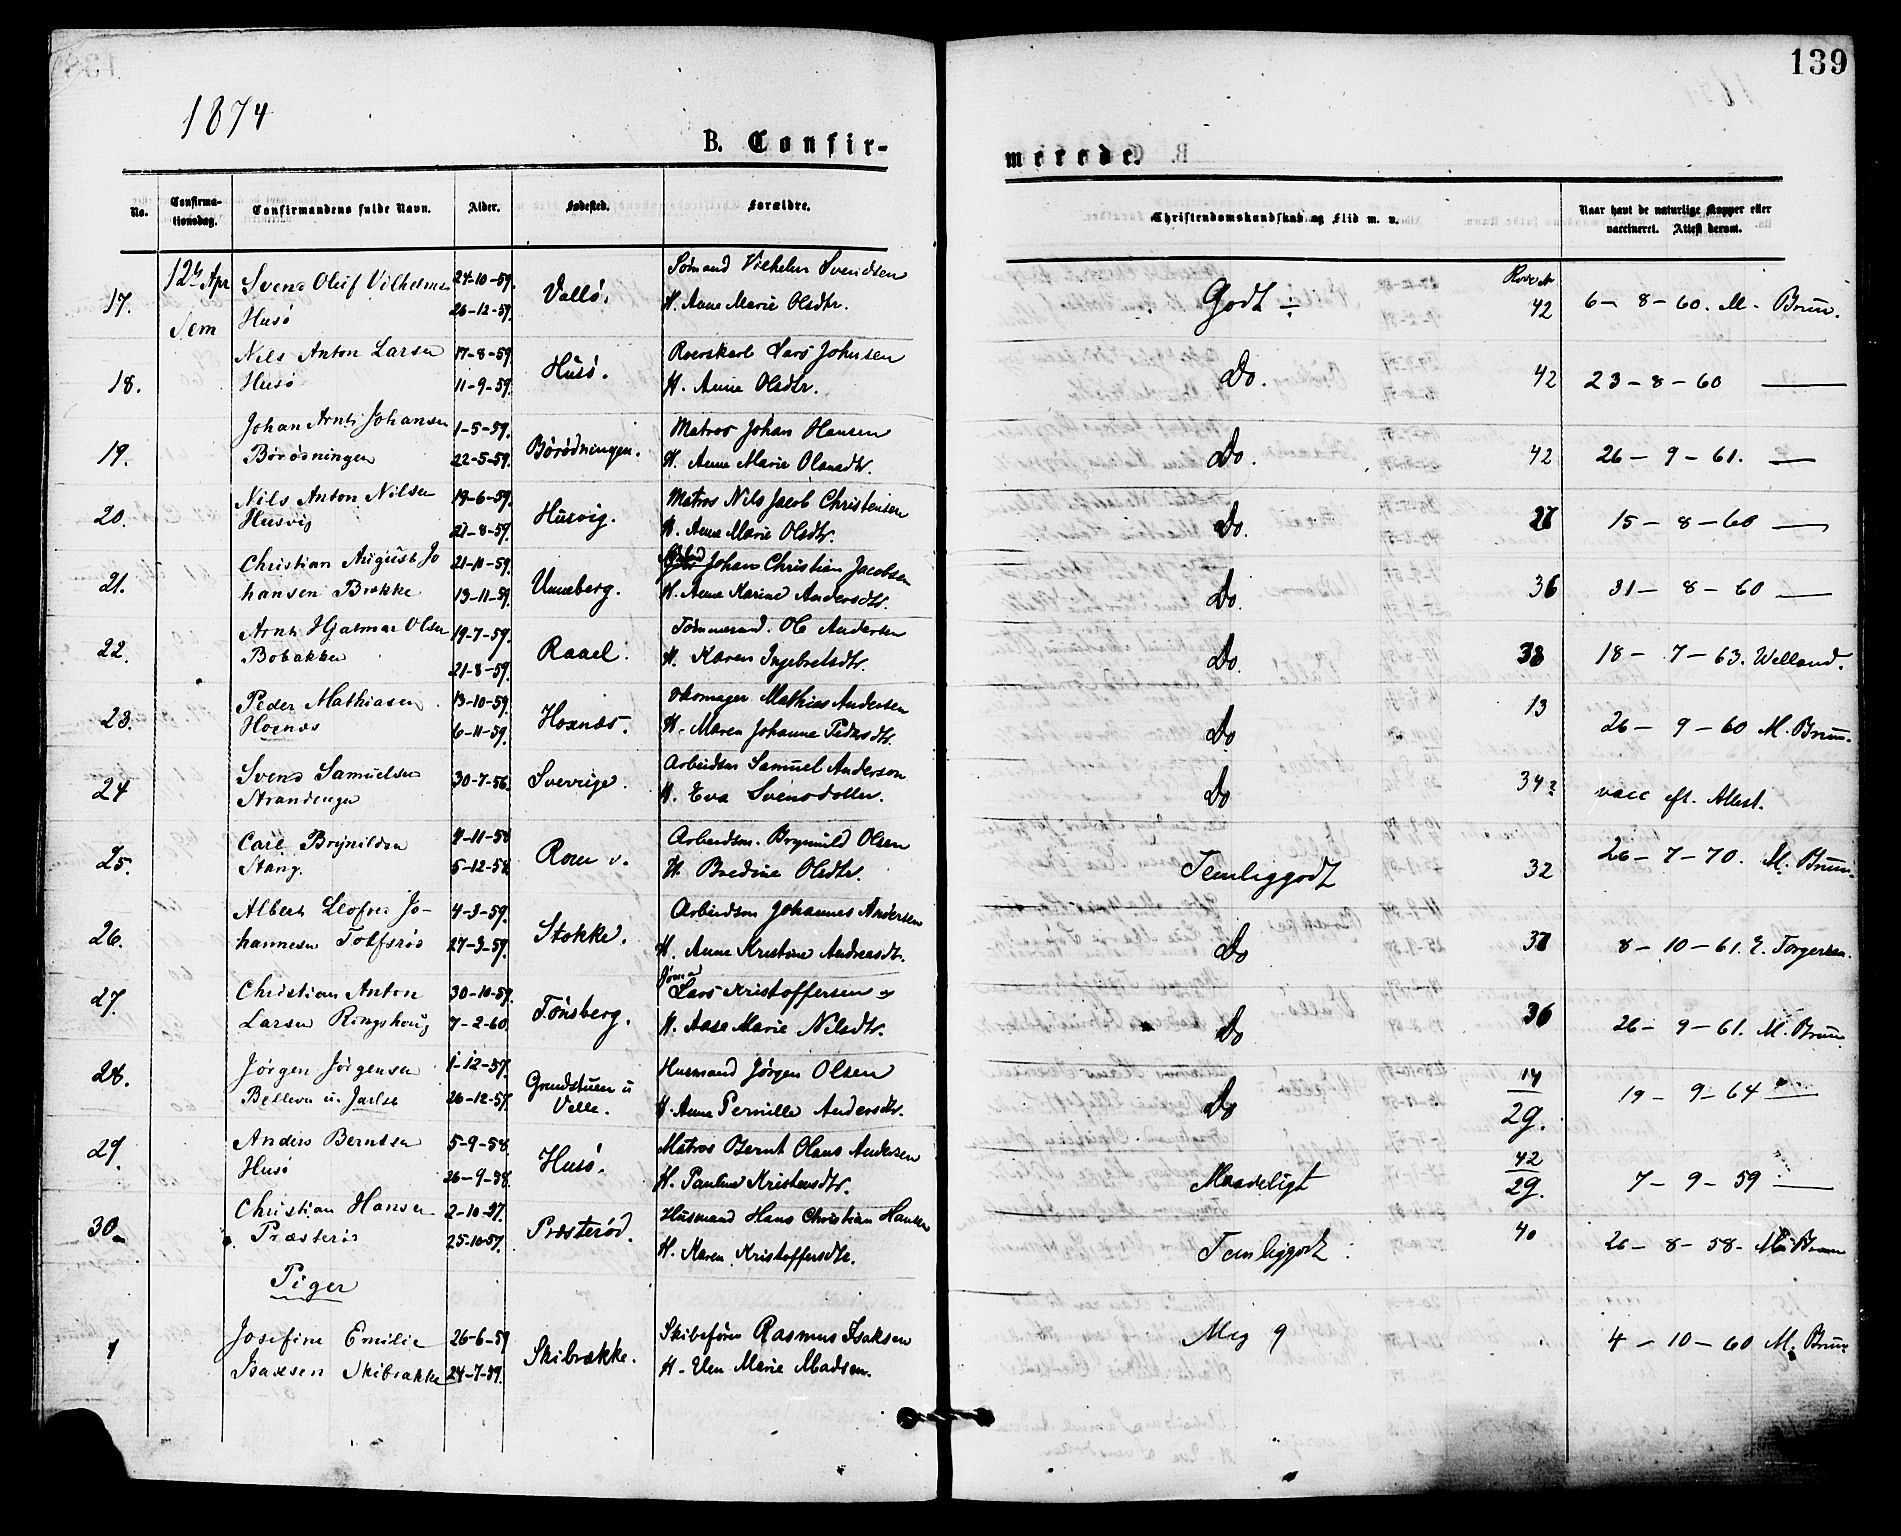 139
1874
B. Confirmerede.
No. | Confirmationsdag. | Confirmandens fulde Navn. | Alder. | Fødested. | Forældre. | Christendomskundskab og Flid m. v. | Naar havt de naturlige Kopper eller vaccineret. Attest derom.
12te Apr Sem
17. Svend Oluf Vilhelmsen | 24-10-59. | Vallö. | Sömand Vilhelm Svendsen | Godt ÷ | 42 | 6-8-60. M. Brun.
Husö | 26-12-59. | H. Anne Marie Olsdtr.
18. Nils Anton Larsen | 17-8-59. | Husö. | Roerskarl Lars Johnsen | Do. | 42 | 23-8-60 —
Husö | 11-9-59. | H. Anne Olsdtr.
19. Johan Arnts Johansen | 1-5-59. | Börödningen. | Matros Johan Hansen | Do. | 42 | 26-9-61. —
Börödningen | 22-5-59. | H. Anne Marie Olausdtr.
20. Nils Anton Nilsen | 19-6-59. | Husvig. | Matros Nils Jacob Christensen | Do. | 15-8-60 —
Husvig | 21-8-59. | H. Anne Marie Olsdtr.
21. Christian August Jo | 21-10-59. | Unneberg. | Johan Christian Jacobsen | Do. | 36 | 31-8-60 —
hansen Brekke | 13-11-59. | H. Anne Karine Andersdtr.
22. Arnts Hjalmar Olsen | 19-7-59. | Raael. | Tömmermd. Ole Andersen | Do. | 38 | 18-7-63. Welland.
Bobakken | 21-8-59. | H. Karen Ingebretsdtr.
23. Peder Mathiasen | 13-10-59. | Hoxnæs. | Skomager Mathias Andersen | Do | 13 | 26-9-60 M. Brun.
Hoxnæs | 6-11-59. | H. Maren Johanne Pedersdtr.
24 Svend Samuelsen | 30-7-56. | Sverrige. | Arbeidsm Samuel Anderson | Do | 34 | vacc eft. Attest.
Strandengen | H. Eva Svensdotter.
25. Carl Brynildsen | 4-11-58 | Roen v. | Arbeidsm. Brynild Olsen | Temliggodt | 32 | 26-7-70. M. Brun.
Stang. | 5-12-58. | H. Bredine Olsdtr.
26. Albert Leofred Jo- | 4-3-59. | Stokke. | Arbeidsm Johannes Andersen | Do | 37 | 8-10-61. E. Torgersen.
hannesen Tolfsrös | 27-3-59. | H. Anne Kristine Andreasdtr.
27. Christian Anton | 30-10-59. | Tönsberg. | Lars Kristoffersen | Do | 36 | 26-9-61. M. Brun
Larsen Ringshoug | 7-2-60. | H. Aase Marie Nilsdtr.
28. Jörgen Jörgensen | 1-12-57. | Grundstuen u | Husmand Jörgen Olsen | Do | 14 | 19-9-64 —
Bellevu u. Jarlsø | 26-12-57. | Velle. | H. Anne Pernille Andersdtr. | 29.
29. Anders Berntsen | 5-9-58. | Husö. | Matros Bernt Olaus Andersen | Maadeligt | 42 | 7-9-59 —
Husö | 26-9-58. | H. Pauline Kristensdtr. | 29.
30. Christian Hansen | 2-10-57. | Præsteröd. | Husmand Hans Christian Hansen | Temliggodt | 40 | 26-8-58- M. Brun
Præsteröd | 25-10-57. | H. Karen Kristoffersdtr.
Piger
1 Josefine Emilie | 26-6-59 | Skibrække. | Skibsförer Rasmus Isaksen | Meg g | 4-10-60 M. Brun
Isaksen Skibrække | 24-7-59. | H. Elen Marie Madsen.